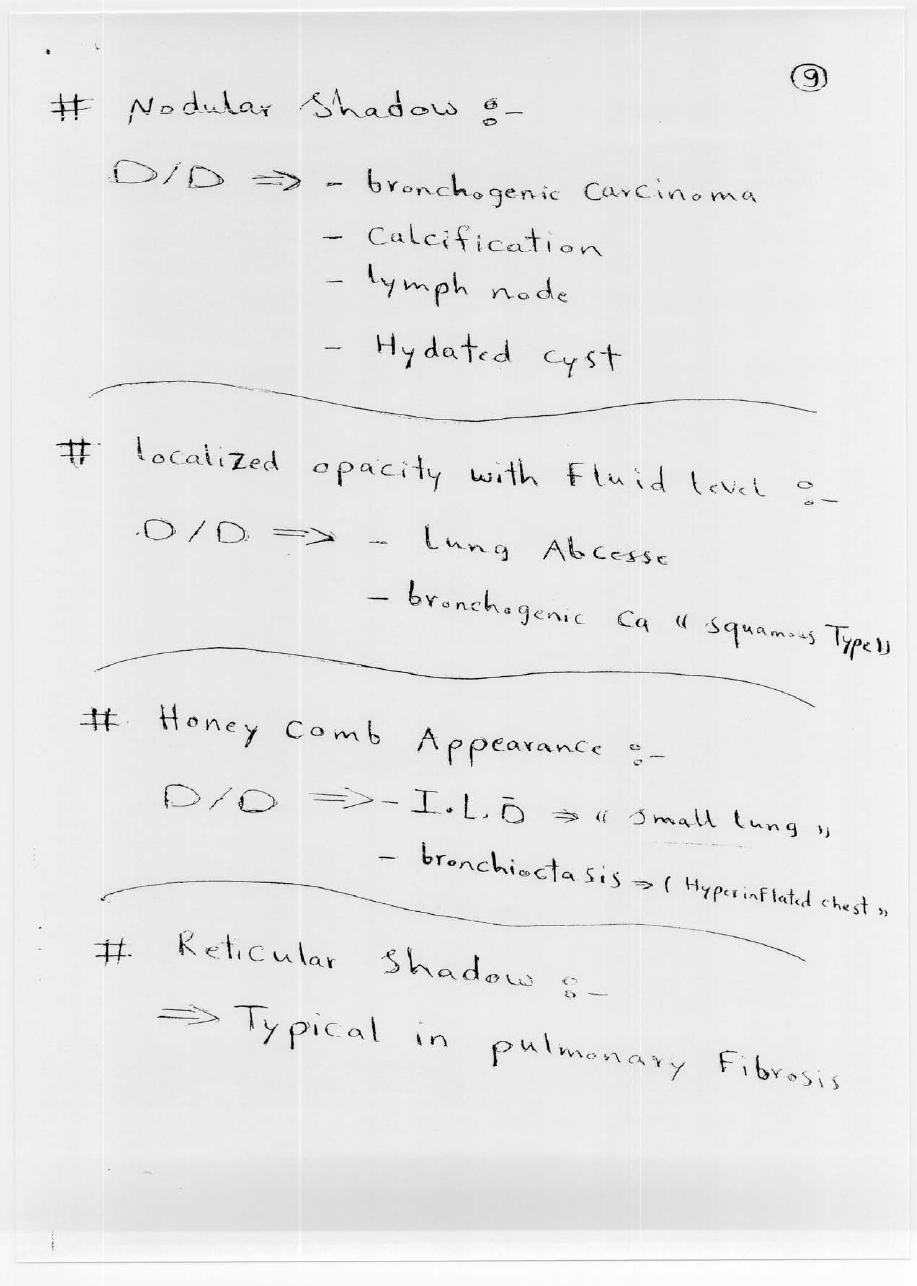 9
# Nodular Shadow :-
D/D ⇒ - bronchogenic Carcinoma
- Calcification
- lymph node
- Hydated cyst
# Localized opacity with Fluid level :-
D/D ⇒ - Lung Abcesse
- bronchogenic Ca "squamous Type"
# Honey Comb Appearance :-
D/D ⇒ - I.L.D ⇒ "small lung"
- bronchioctasis ⇒ (Hyperinflated chest"
# Reticular Shadow :-
⇒ Typical in pulmonary Fibrosis